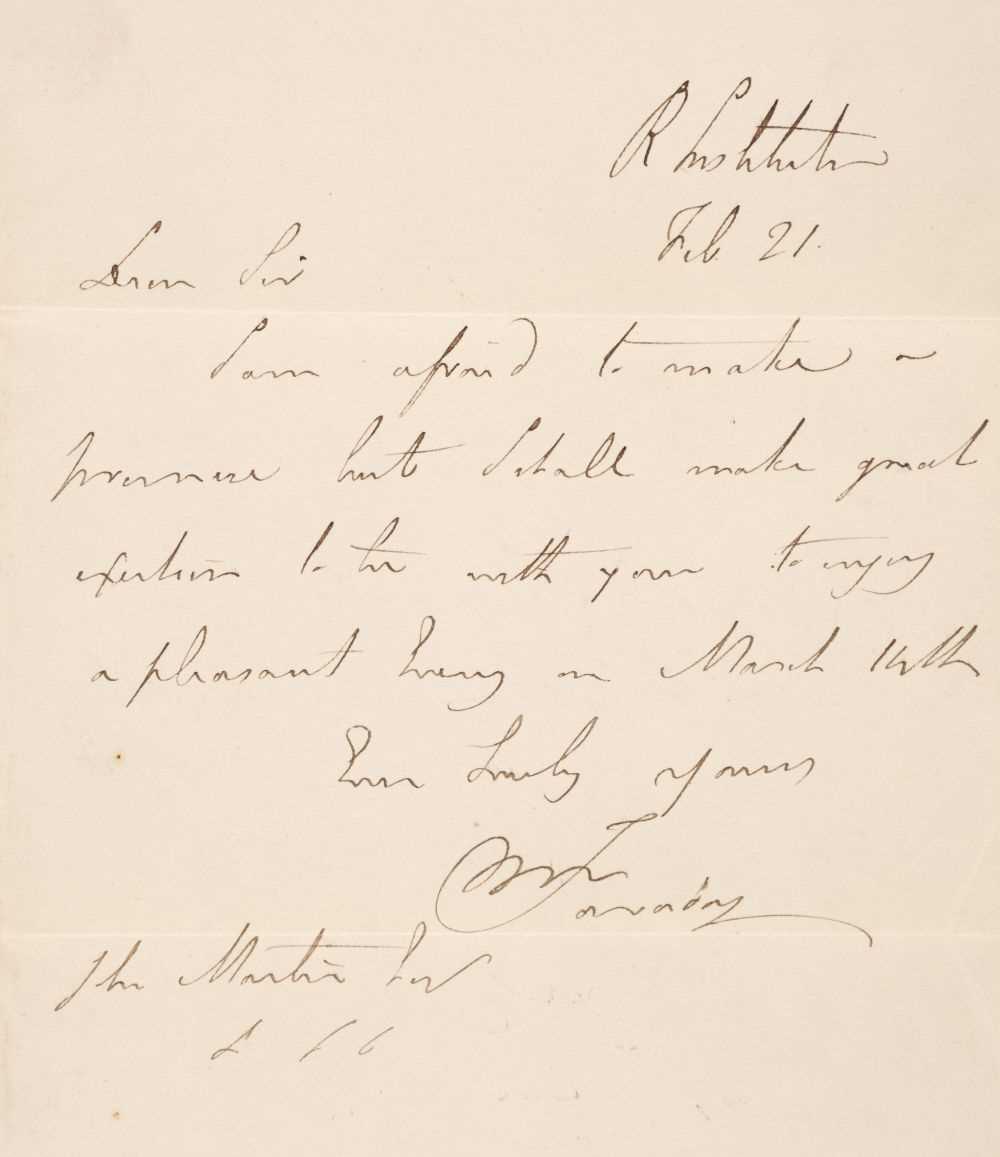 R Institution
Feb 21.
Dear Sir
I am afraid to make a
promise but I shall make great
exertion to be with you to enjoy
a pleasant Eveng on March 14th
Ever Truly Yours
M Faraday
Jno Martin Esq
& &c &c